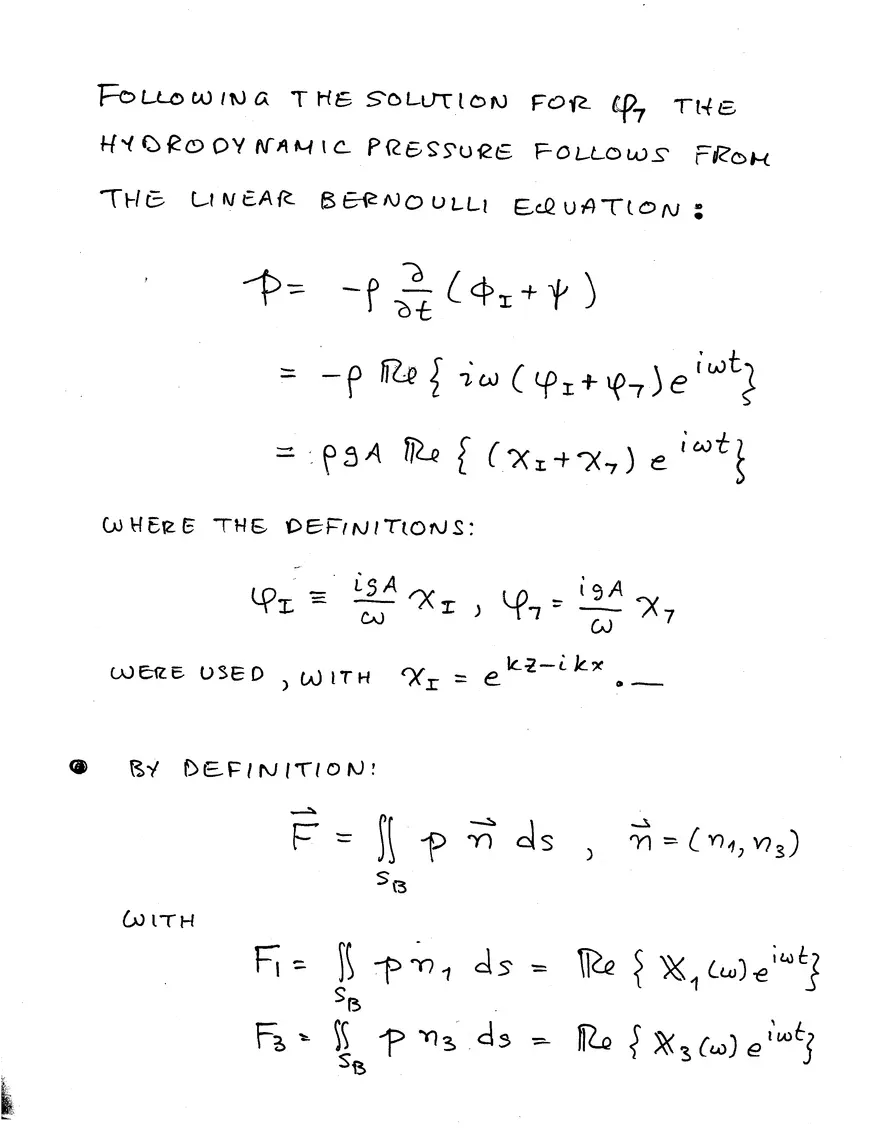 FOLLOWING THE SOLUTION FOR φ₇ THE
HYDRODYNAMIC PRESSURE FOLLOWS FROM
THE LINEAR BERNOULLI EQUATION:
p = -ρ ∂/∂t (Φ_I + ψ)
= -ρ ℝe { iω (φ_I + φ₇) e^{iωt} }
= ρgA ℝe { (χ_I + χ₇) e^{iωt} }
WHERE THE DEFINITIONS:
φ_I ≡ igA/ω χ_I , φ₇ = igA/ω χ₇
WERE USED, WITH χ_I = e^{kz-ikx} .—
• BY DEFINITION:
F⃗ = ∬_{S_B} p n⃗ ds , n⃗ = (n₁, n₃)
WITH
F₁ = ∬_{S_B} p n₁ ds = ℝe { 𝕏₁(ω) e^{iωt} }
F₃ = ∬_{S_B} p n₃ ds = ℝe { 𝕏₃(ω) e^{iωt} }